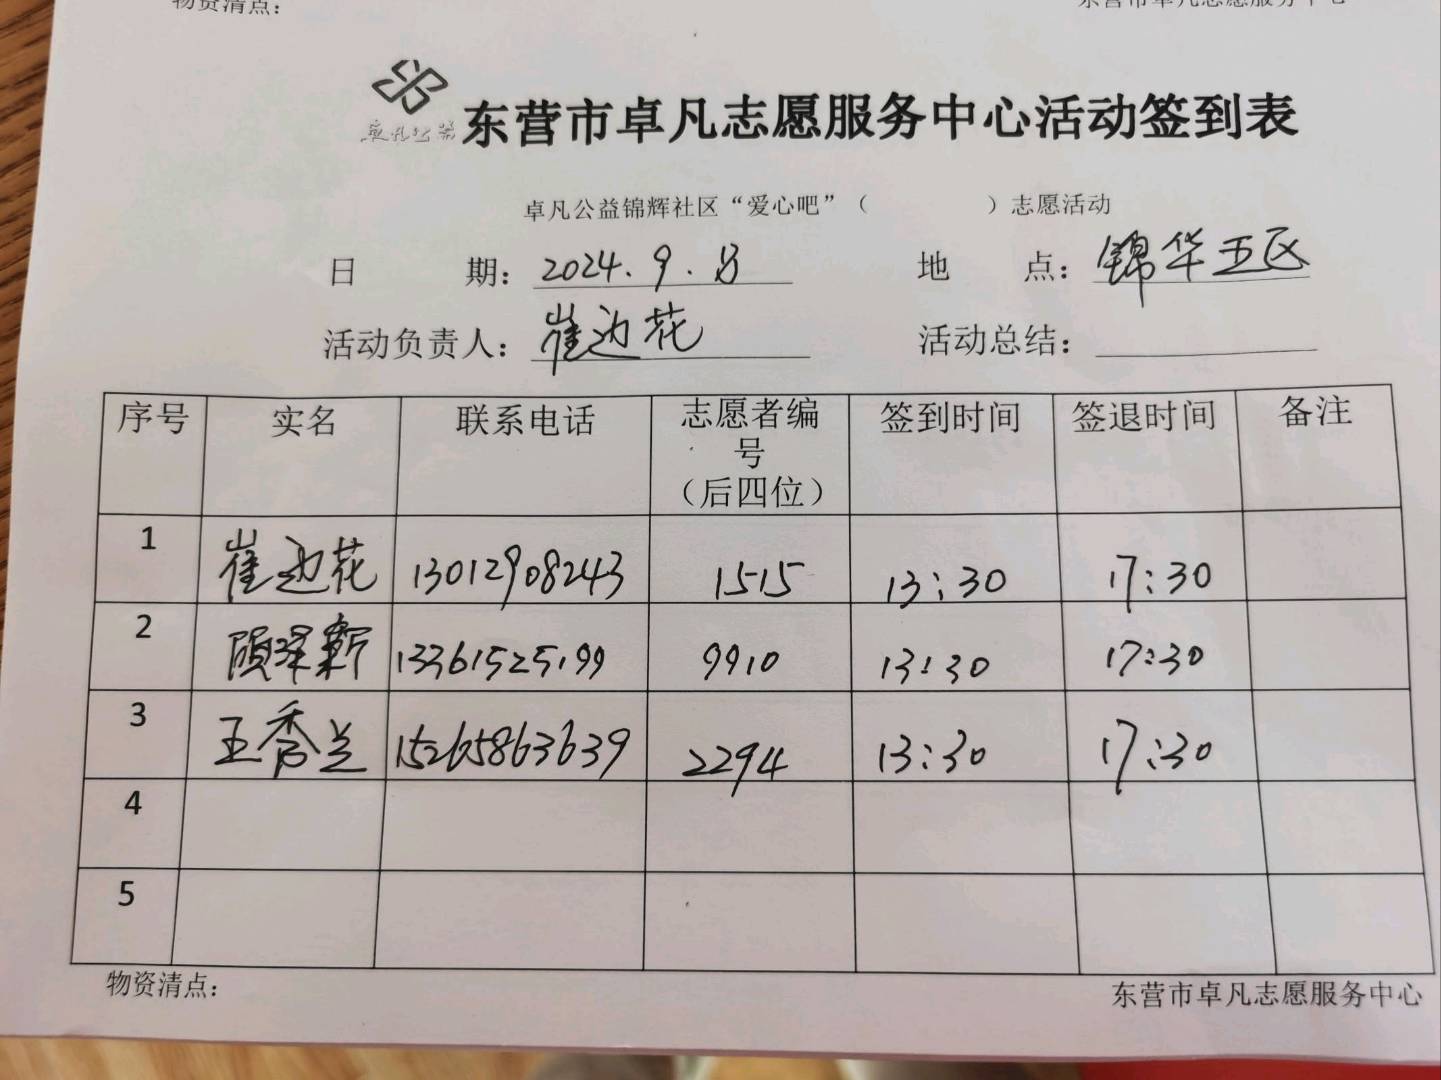 物资清点：
东营市卓凡志愿服务中心
卓凡公益
东营市卓凡志愿服务中心活动签到表
卓凡公益锦辉社区“爱心吧”（ ）志愿活动
日 期： 2024.9.8 地 点： 锦华五区
活动负责人： 崔边花 活动总结：
序号 实名 联系电话 志愿者编号（后四位） 签到时间 签退时间 备注
1 崔边花 13012908243 1515 13:30 17:30
2 13361525199 9910 13:30 17:30
3 王秀兰 15265863639 2294 13:30 17:30
4
5
物资清点：
东营市卓凡志愿服务中心